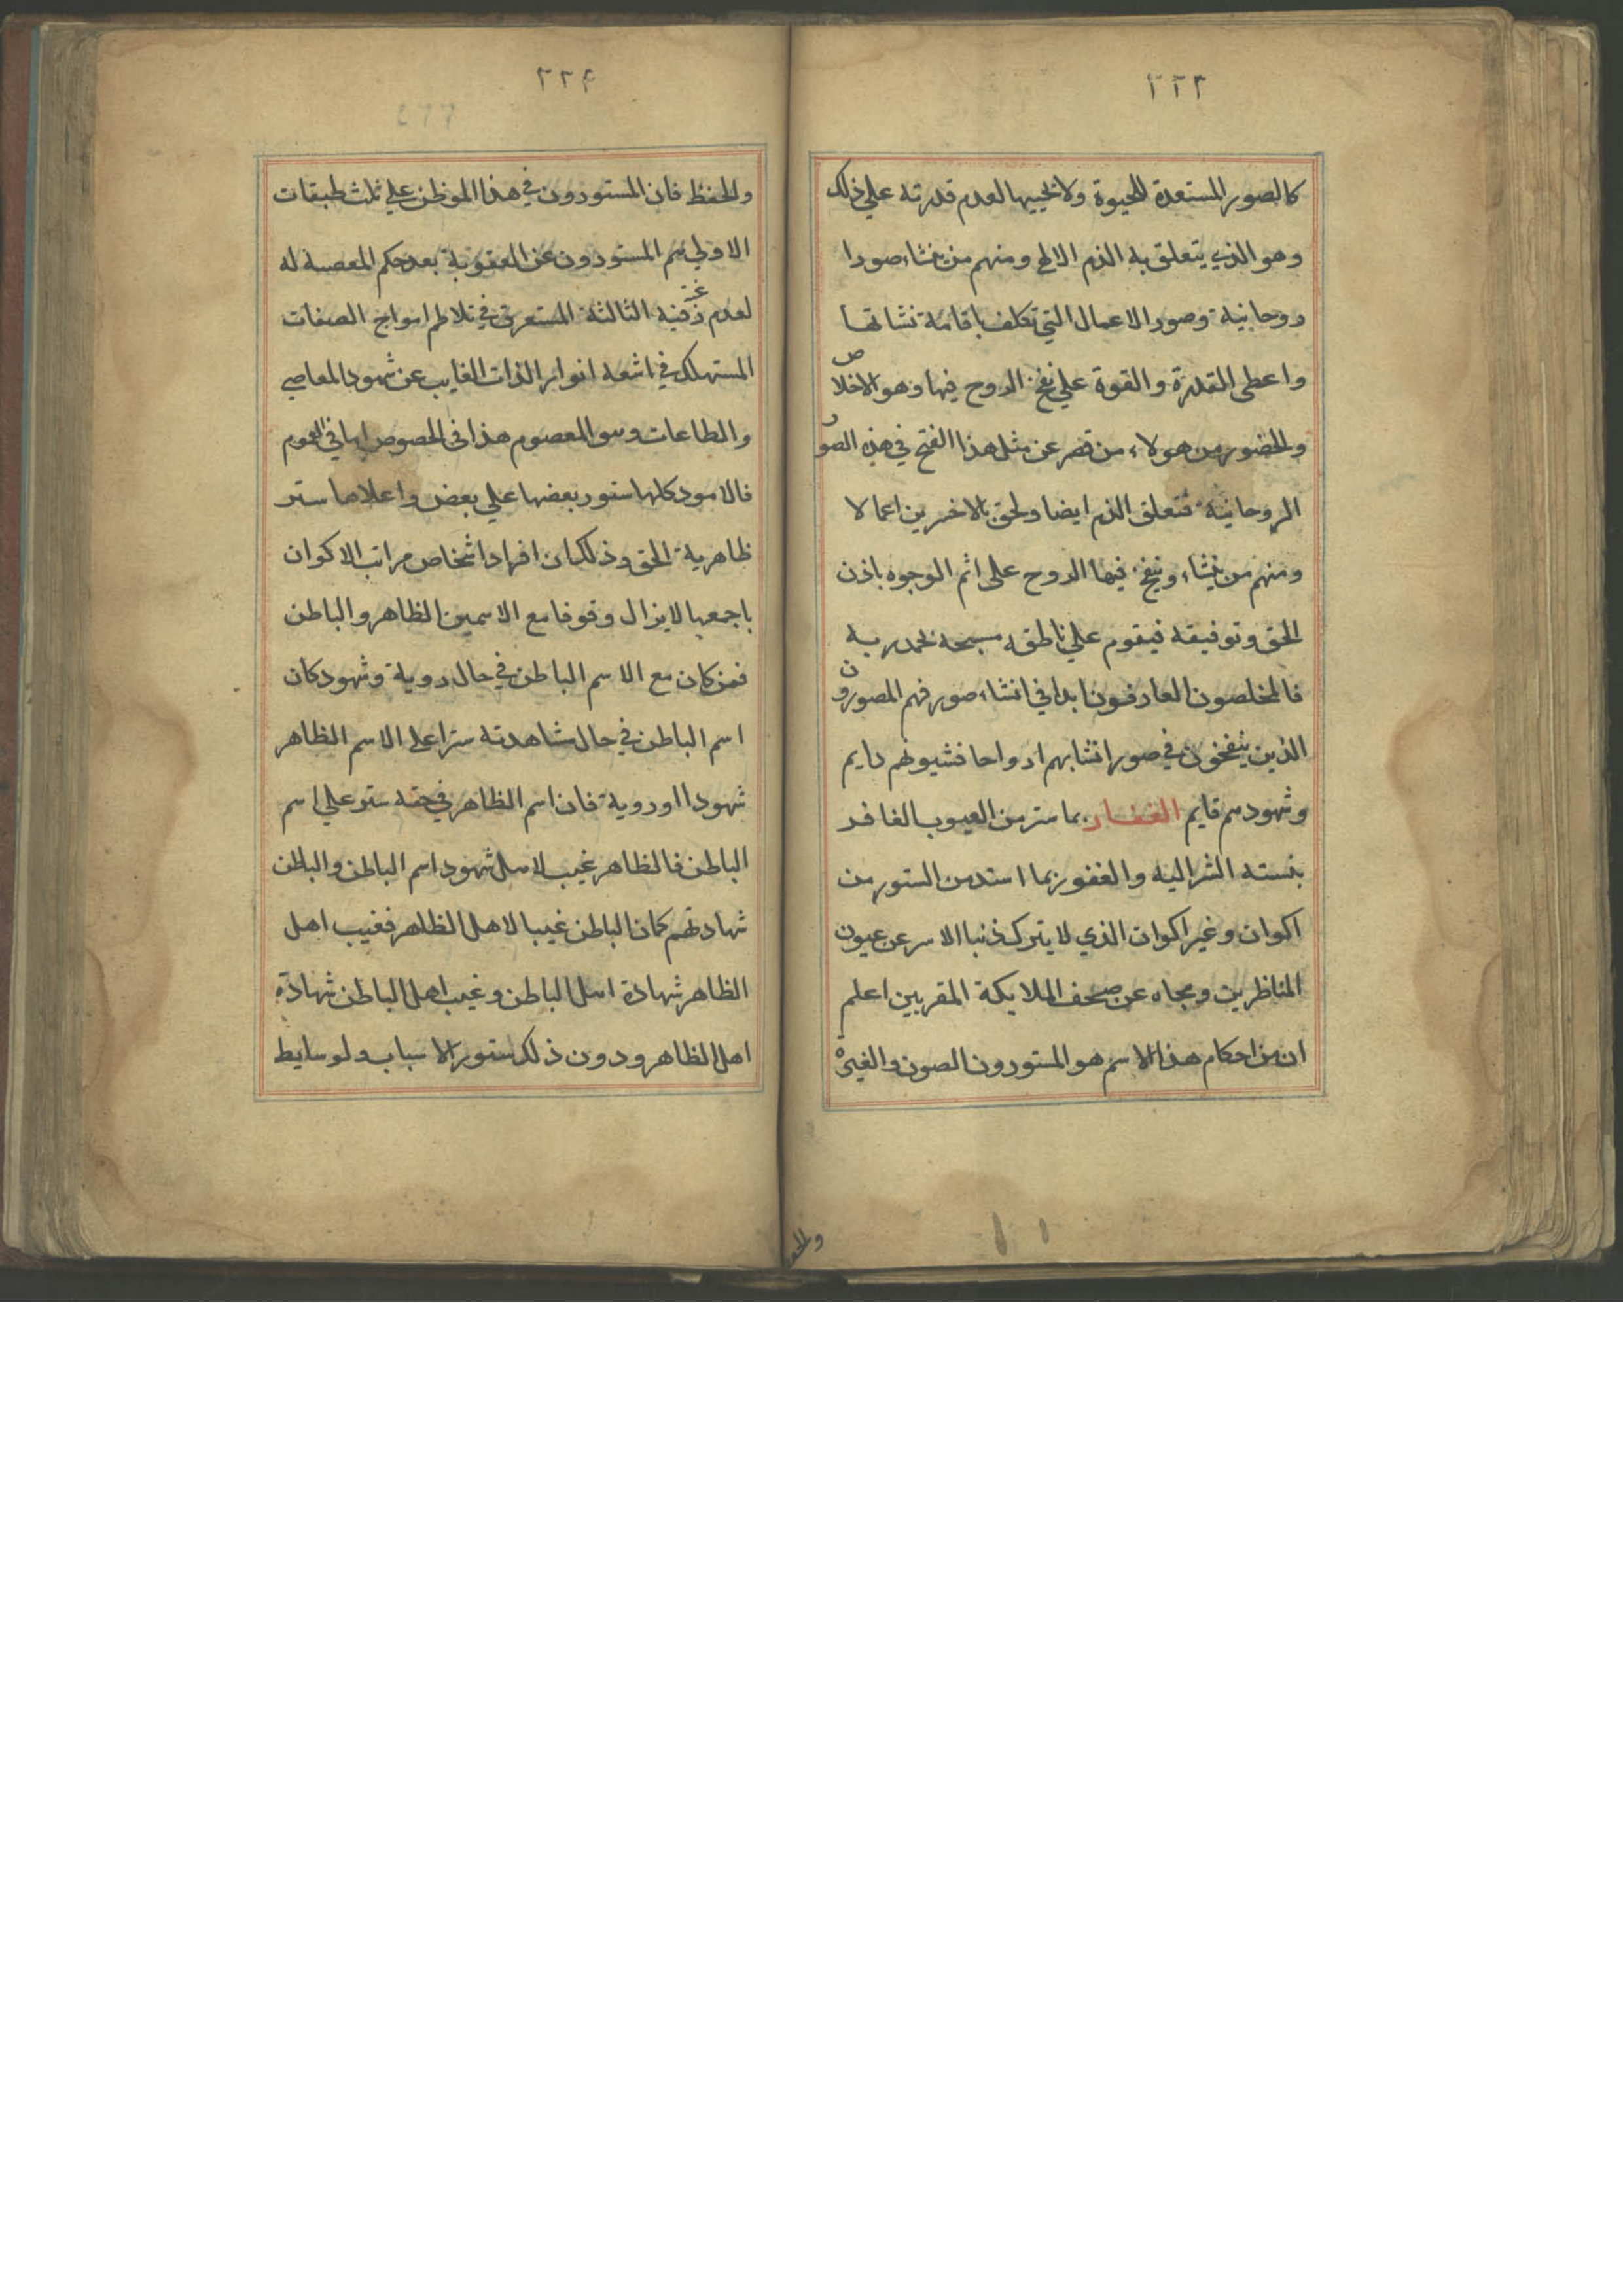 ٢٢٣
كالصور المستعدة للحيوة ولا يحييها لعدم قدرته علي ذلك
وهو الذي يتعلق به الذم الالهي ومنهم من ينشاء صورا
روحانية وصور الاعمال التي تكلف باقامة نشاتها
واعطى المقدرة والقوة علي نفخ الروح فيها وهو الاخلاص
والحضور من هولاء من قصر عن مثل هذا الفتح في هذه الصور
الروحانية فتعلق الذم ايضا ولحق بالاخسرين اعمالا
ومنهم من ينشاء وينفخ فيها الروح على اتم الوجوه باذن
الحق وتوفيقه فيقوم علي ناطقه مسبحه بحمد ربه
فالمخلصون العارفون ابدا في انشاء صور فهم المصورون
الذين ينفخون في صور انشابهم ارواحا فشيونهم دايم
وشهودهم قايم الغفار بما ستر من العيوب الغافر
بنسته الشر اليه والغفور بما استد من الستور من
اكوان وغير اكوان الذي لا يترك ذنبا الا ستر عن عيون
الناظرين ومحاه عن صحف الملايكة المقربين اعلم
ان من احكام هذا الاسم هو المستورون الصون والغيرة
والحفظ
٢٢٤
والحفظ فان المستورون في هذا الموطن علي ثلث طبقات
الاولي هم المستورون عن العقوبة بعد حكم المعصية له
لعدم الثالثة المستغرق في تلاطم امواج الصفات
المستهلك في اشعة انوار الذات الغايب عن شهود المعاصي
والطاعات وهو المعصوم هذا في الخصوص اما في العموم
فالامور كلها ستور بعضها علي بعض واعلاها ستر
ظاهرية الحق وذلك ان افراد اشخاص مراتب الاكوان
باجمعها لا يزال وقوفا مع الاسمين الظاهر والباطن
فمن كان مع الاسم الباطن في حال روية وشهود كان
اسم الباطن في حال مشاهدته سترا على الاسم الظاهر
شهودا او روية فان اسم الظاهر في حقه ستر علي اسم
الباطن فالظاهر غيب لاهل شهود اسم الباطن والباطن
شهادتهم كما ان الباطن غيبا لاهل الظاهر فغيب اهل
الظاهر شهادة اهل الباطن وغيب اهل الباطن شهادة
اهل الظاهر ودون ذلك ستور الاسباب ولوسايط